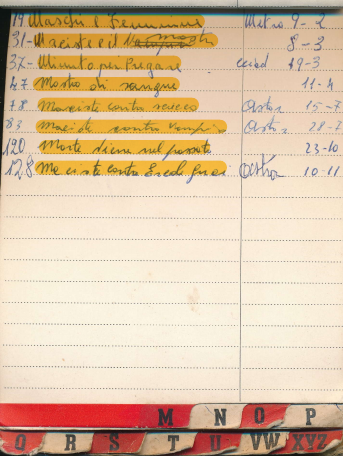 19 Maschi e Femmine Metro 9-2
31- Maciste e il Mostri 8-3
37- Minuto per Pregare 19-3
47 Mostro di sangue 11-4
78 Maciste contro Astra 15-7
83 Maciste contro Vampiro Astra 28-7
120 Morte viene nel passato 23-10
128 Maciste contro Astra 10-11
M N O P
Q R S T U VW XYZ